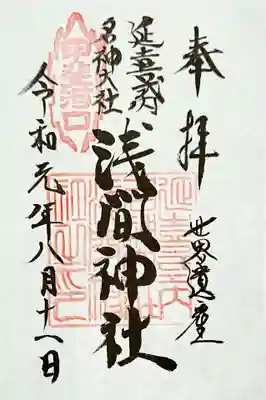 奉拝
世界遺産
延喜式内
名神大社
浅間神社
令和元年八月十八日